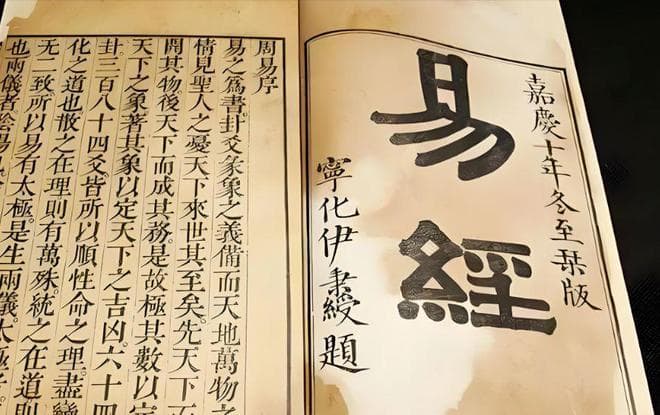 嘉慶十年冬至栞版
易經
寧化伊秉綬題
周易序
易之爲書卦爻彖象之義備而天地萬物之
情見聖人之憂天下來世其至矣先天下而
開其物後天下而成其務是故極其數以定
天下之象著其象以定天下之吉凶六十四
卦三百八十四爻皆所以順性命之理盡變
化之道也散之在理則有萬殊統之在道則
无二致所以易有太極是生兩儀太極
也兩儀者陰陽